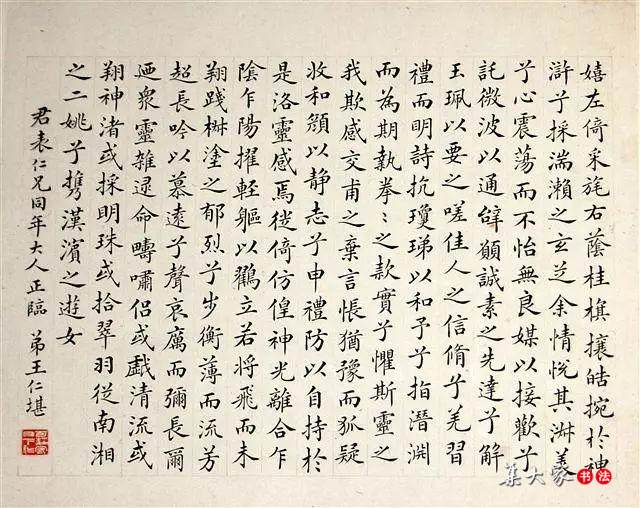 嬉左倚采旄右蔭桂旗攘皓捥於神
滸兮採湍瀨之玄芝余情悅其淑美
兮心震蕩而不怡無良媒以接歡兮
託微波以通辭願誠素之先達兮解
玉珮以要之嗟佳人之信脩兮羌習
禮而明詩抗瓊珶以和予兮指潛淵
而為期執拳〻之款實兮懼斯靈之
我欺感交甫之棄言悵猶豫而狐疑
收和顏以静志兮申禮防以自持於
是洛靈感焉徙倚仿偟神光離合乍
陰乍陽擢軽軀以鶴立若將飛而未
翔踐椒塗之郁烈兮步衡薄而流芳
超長吟以慕遠兮聲哀厲而彌長爾
迺衆靈雜遝命疇嘯侶或戲清流或
翔神渚或採明珠或拾翠羽從南湘
之二姚兮攜漢濱之遊女
君表仁兄同年大人正臨 弟王仁堪
集大家书法